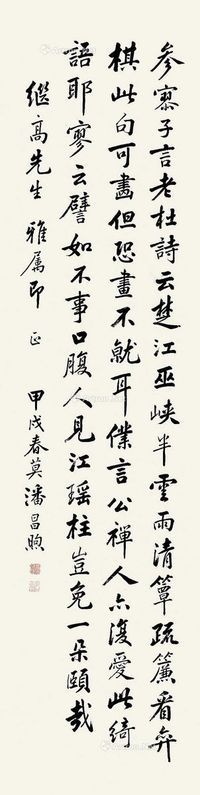 参寥子言老杜詩云楚江巫峽半雲雨清簟疏簾看弈
棋此句可畫但恐畫不就耳僕言公禪人亦復愛此綺
語耶寥云譬如不事口腹人見江瑤柱豈免一朵頤哉
繼高先生 雅属即正
甲戌春莫潘昌煦